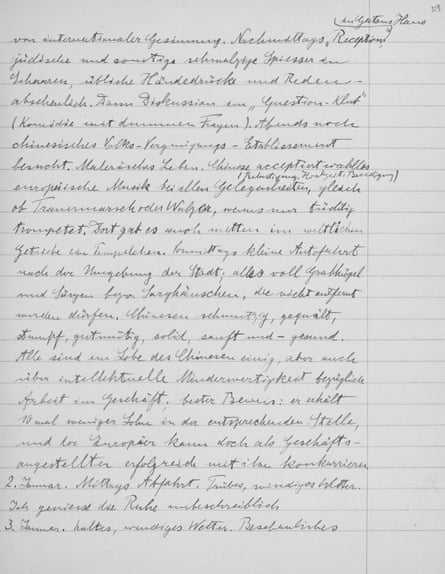 29
in Gattons Haus
von internationaler Gesinnung. Nachmittags „Reception"
jüdische und sonstige schmalzige Spiesser in
Scharen, übliche Händedrücke und Reden -
abscheulich. Dann Diskussion im „Question-Klub"
(Komödie mit dummen Fragen). Abends noch
chinesisches Volks-Vergnügungs-Etablissement
besucht. Malerisches Leben. Chinese acceptiert wahllos
(Belustigung, Hochzeit, Beerdigung)
europäische Musik bei allen Gelegenheiten, gleich
ob Trauermarsch oder Walzer, wenns nur tüchtig
trompetet. Dort gab es auch mitten im weltlichen
Getriebe ein Tempelchen. Vormittags kleine Autofahrt
nach der Umgebung der Stadt, alles voll Grabhügel
und Särgen bezw. Sarghäuschen, die nicht entfernt
werden dürfen. Chinesen schmutzig, gequält,
stumpf, gutmütig, solid, sanft und - gesund.
Alle sind im Lobe des Chinesen einig, aber auch
über intellektuelle Minderwertigkeit bezüglich
Arbeit im Geschäft; bester Beweis: er erhält
10 mal weniger Lohn in der entsprechenden Stelle,
und der Europäer kann doch als Geschäfts-
angestellter erfolgreich mit ihm konkurrieren
2. Januar. Mittags Abfahrt. Trübes, windiges Wetter.
Ich geniesse die Ruhe unbeschreiblich
3. Januar. kaltes, windiges Wetter. Beschauliches